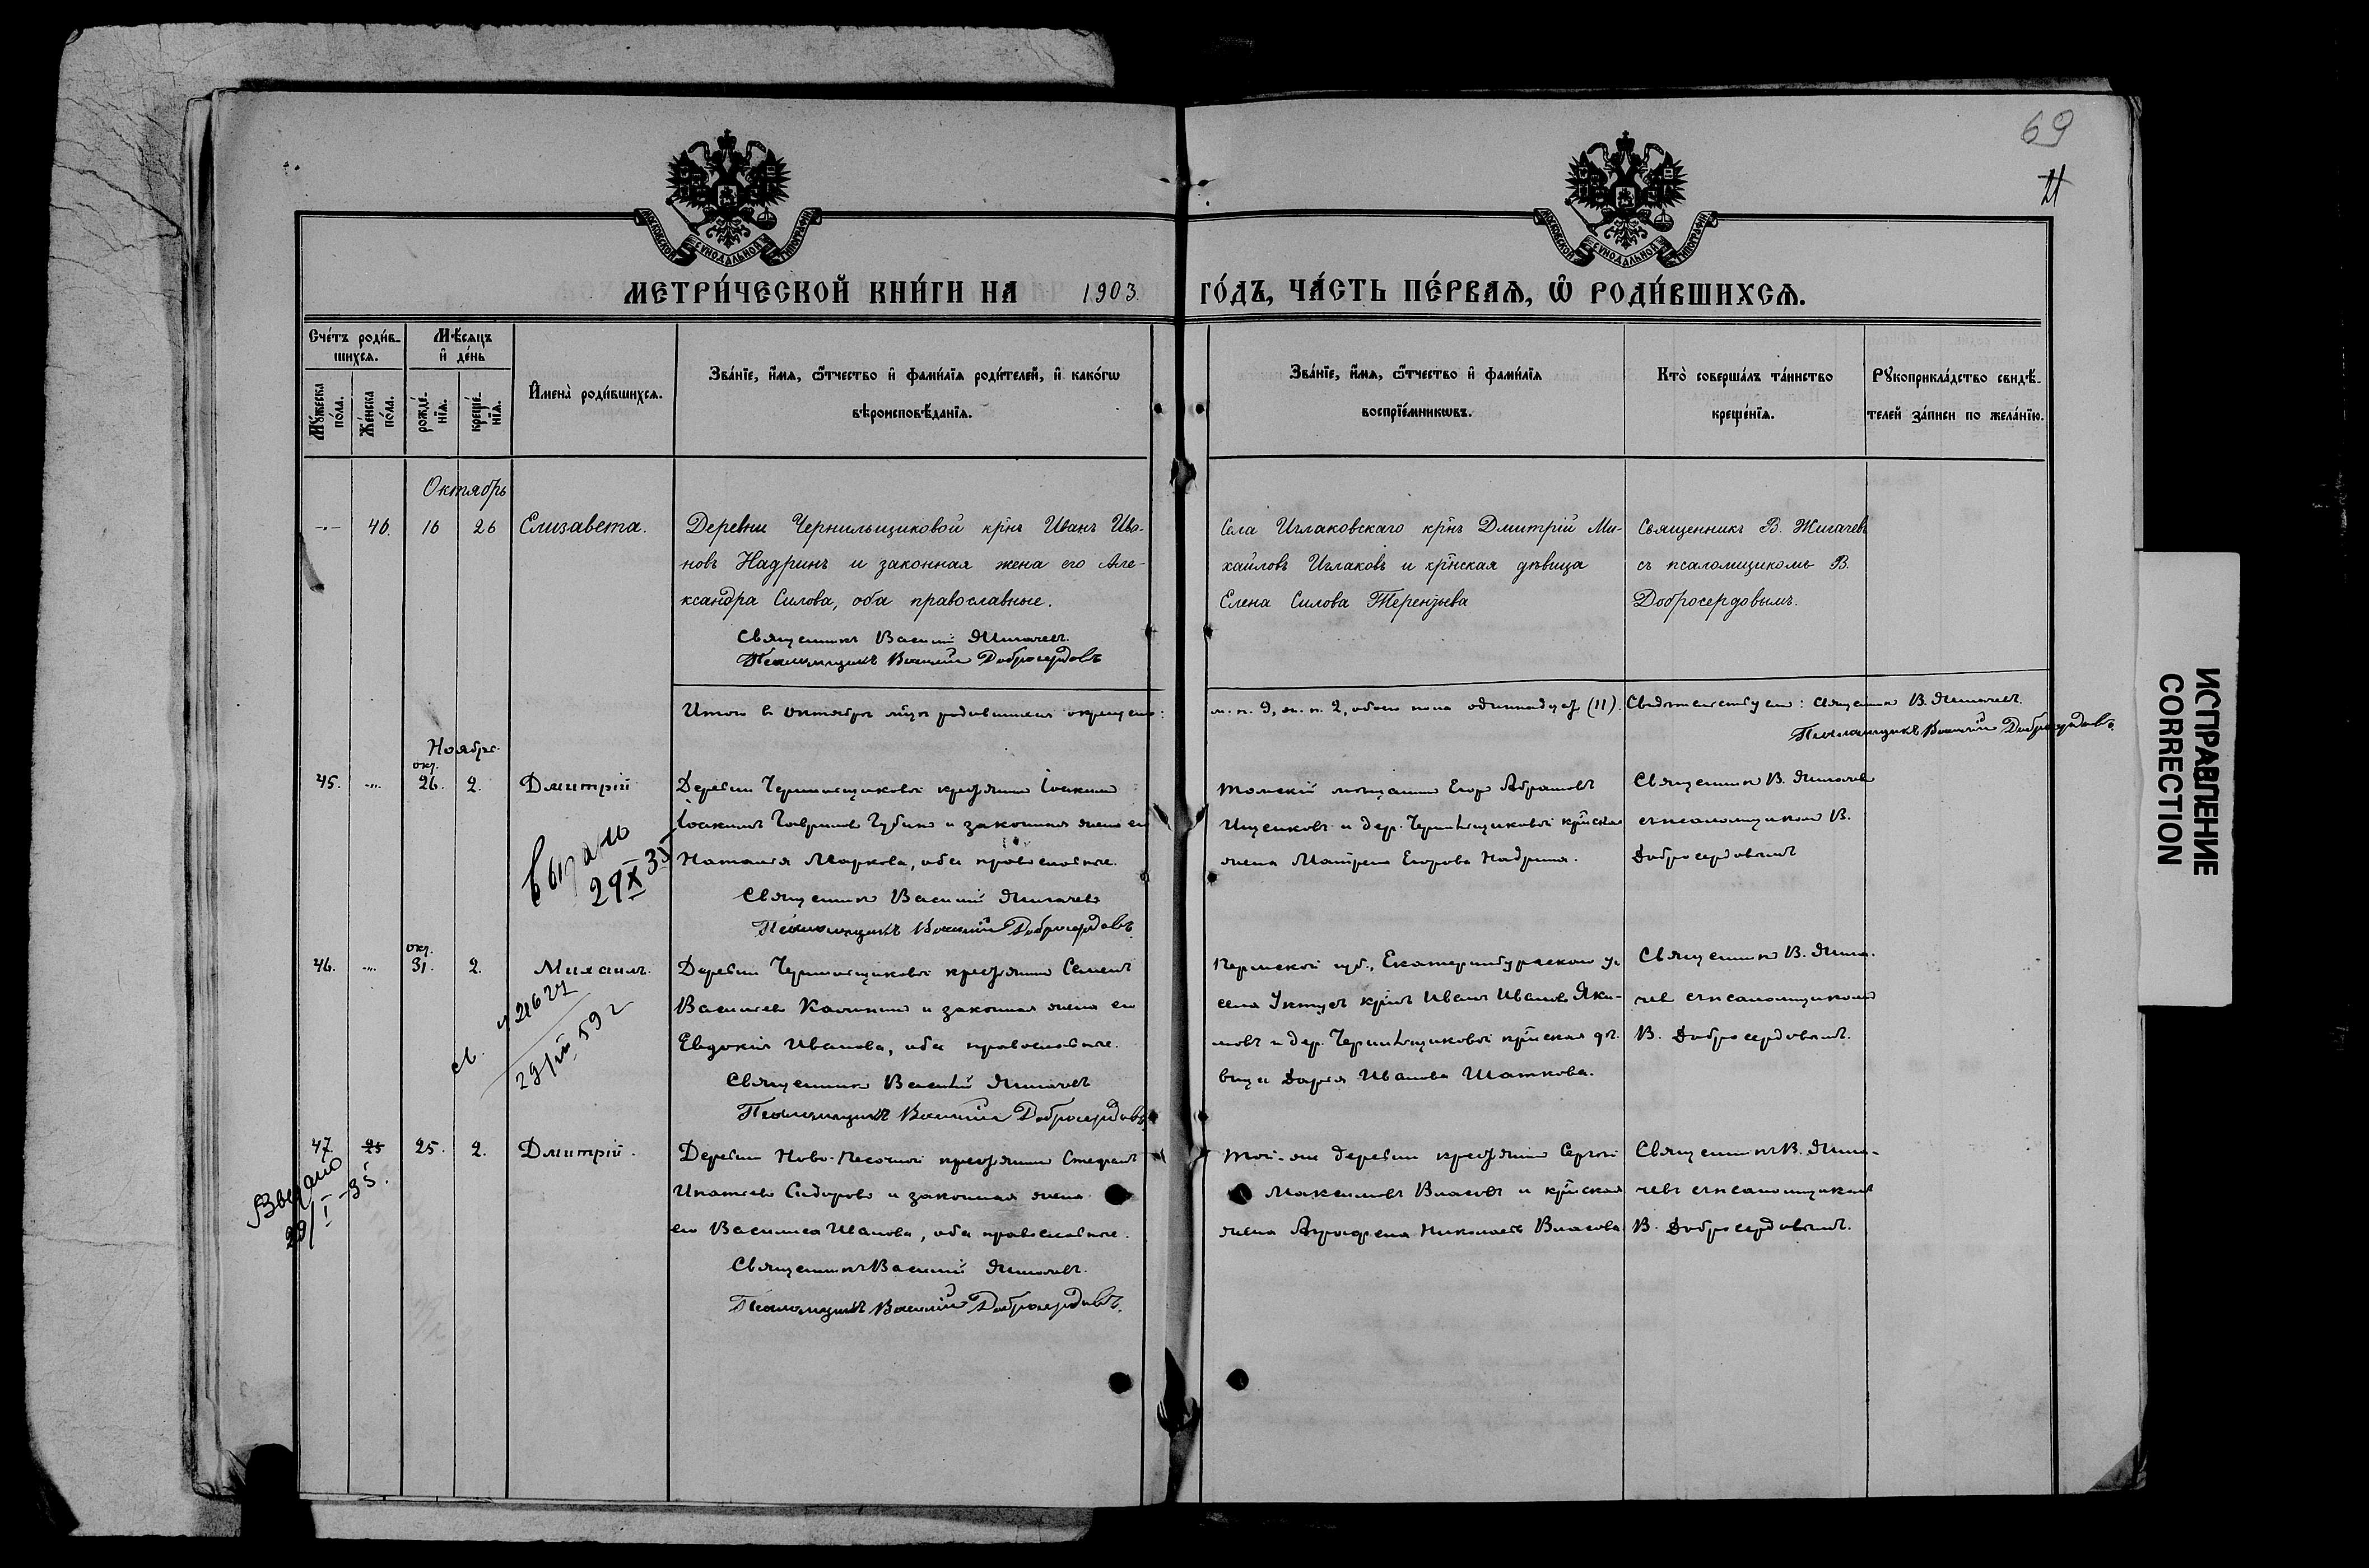 69
21
МОСКОВСКОЙ СѴНОДАЛЬНОЙ ТИПОГРАФІИ
МОСКОВСКОЙ СѴНОДАЛЬНОЙ ТИПОГРАФІИ
МЕТРИ́ЧЕСКОЙ КНИ́ГИ НА 1903. ГО́ДЪ, ЧА́СТЬ ПЕ́РВАѦ, Ѡ҆ РОДИ́ВШИХСѦ.
Сче́тъ роди́в-
шихсѧ.
Мꙋ́жеска по́ла.
Же́нска по́ла.
Мѣ́сѧцъ
и҆ де́нь
рожде́-
нїѧ.
креще́-
нїѧ.
И҆мена̀ роди́вшихсѧ.
Зва́нїе, и҆́мѧ, ѻ҆́тчество и҆ фами́лїѧ роди́телей, и҆ како́гѡ
вѣроисповѣ́данїѧ.
Зва́нїе, и҆́мѧ, ѻ҆́тчество и҆ фами́лїѧ
воспрїе́мникѡвъ.
Кто̀ соверша́лъ та́инство
креще́нїѧ.
Рꙋкоприкла́дство свидѣ́-
телей за́писи по жела́нїю.
Октябрь
-·- 46. 16 26 Елизавета.
Деревни Чернильщиковой кр̃нъ Иванъ Ива-
новъ Надринъ и законная жена его Але-
ксандра Силова, оба православные.
Священникъ Василій Жигачевъ.
Псаломщикъ Василій Добросердовъ
Села Иглаковскаго кр̃нъ Дмитрій Ми-
хайловъ Иглаковъ и кр̃нская дѣвица
Елена Силова Терентьева
Священникъ В. Жигачевъ
съ псаломщикомъ В.
Добросердовымъ.
Итого въ Октябрѣ мѣсяцѣ родившихся окрещено: м. п. 9, ж. п. 2, обоего пола одиннадцать (11). Свидѣтельствуемъ: Священникъ В. Жигачевъ.
Псаломщикъ Василій Добросердовъ.
Ноябрь.
45. -..- окт. 26. 2. Дмитрій
Деревни Чернильщиковой крестьянинъ Іоакимъ
Іоакимъ Гавриловъ Губинъ и законная жена его
Наталія Маркова, оба православные.
Священникъ Василій Жигачевъ
Псаломщикъ Василій Добросердовъ
Томскій мѣщанинъ Егоръ Абрамовъ
Ищенковъ и дер. Чернильщиковой кр̃нская
жена Матрена Егорова Надрина.
Священникъ В. Жигачевъ
съ псаломщикомъ В.
Добросердовымъ
29 X 35
46. -..- окт. 31. 2. Михаилъ.
Деревни Чернильщиковой крестьянинъ Семенъ
Васильевъ Калининъ и законная жена его
Евдокія Иванова, оба православные.
Священникъ Василій Жигачевъ
Псаломщикъ Василій Добросердовъ
Пермской губ., Екатеринбургскаго у.
села Уктусъ кр̃нъ Иванъ Ивановъ Яки-
мовъ и дер. Чернильщиковой кр̃нская дѣ-
вица Дарья Иванова Шаткова.
Священникъ В. Жига-
чевъ съ псаломщикомъ
В. Добросердовымъ.
47. 25 25. 2. Дмитрій.
Деревни Ново-Песочной крестьянинъ Стефанъ
Игнатьевъ Сидоровъ и законная жена
его Василиса Иванова, оба православные.
Священникъ Василій Жигачевъ.
Псаломщикъ Василій Добросердовъ.
Той-же деревни крестьянинъ Сергѣй
Максимовъ Власовъ и кр̃нская
жена Агрофена Николаева Власова.
Священникъ В. Жига-
чевъ съ псаломщикомъ
В. Добросердовымъ.
29/I-35.
ИСПРАВЛЕНИЕ
CORRECTION